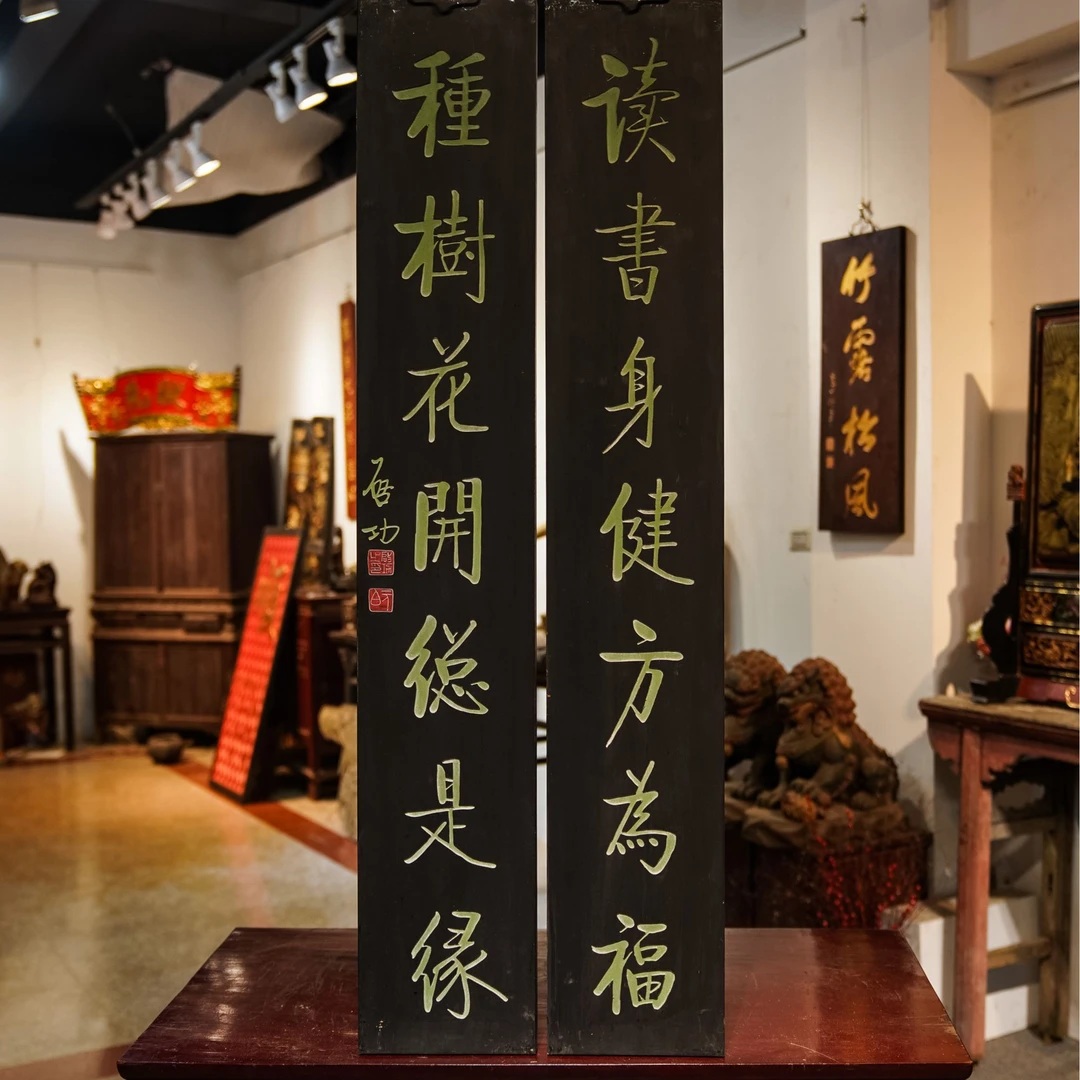 读書身健方為福
種樹花開緫是緣
启功
竹露松風